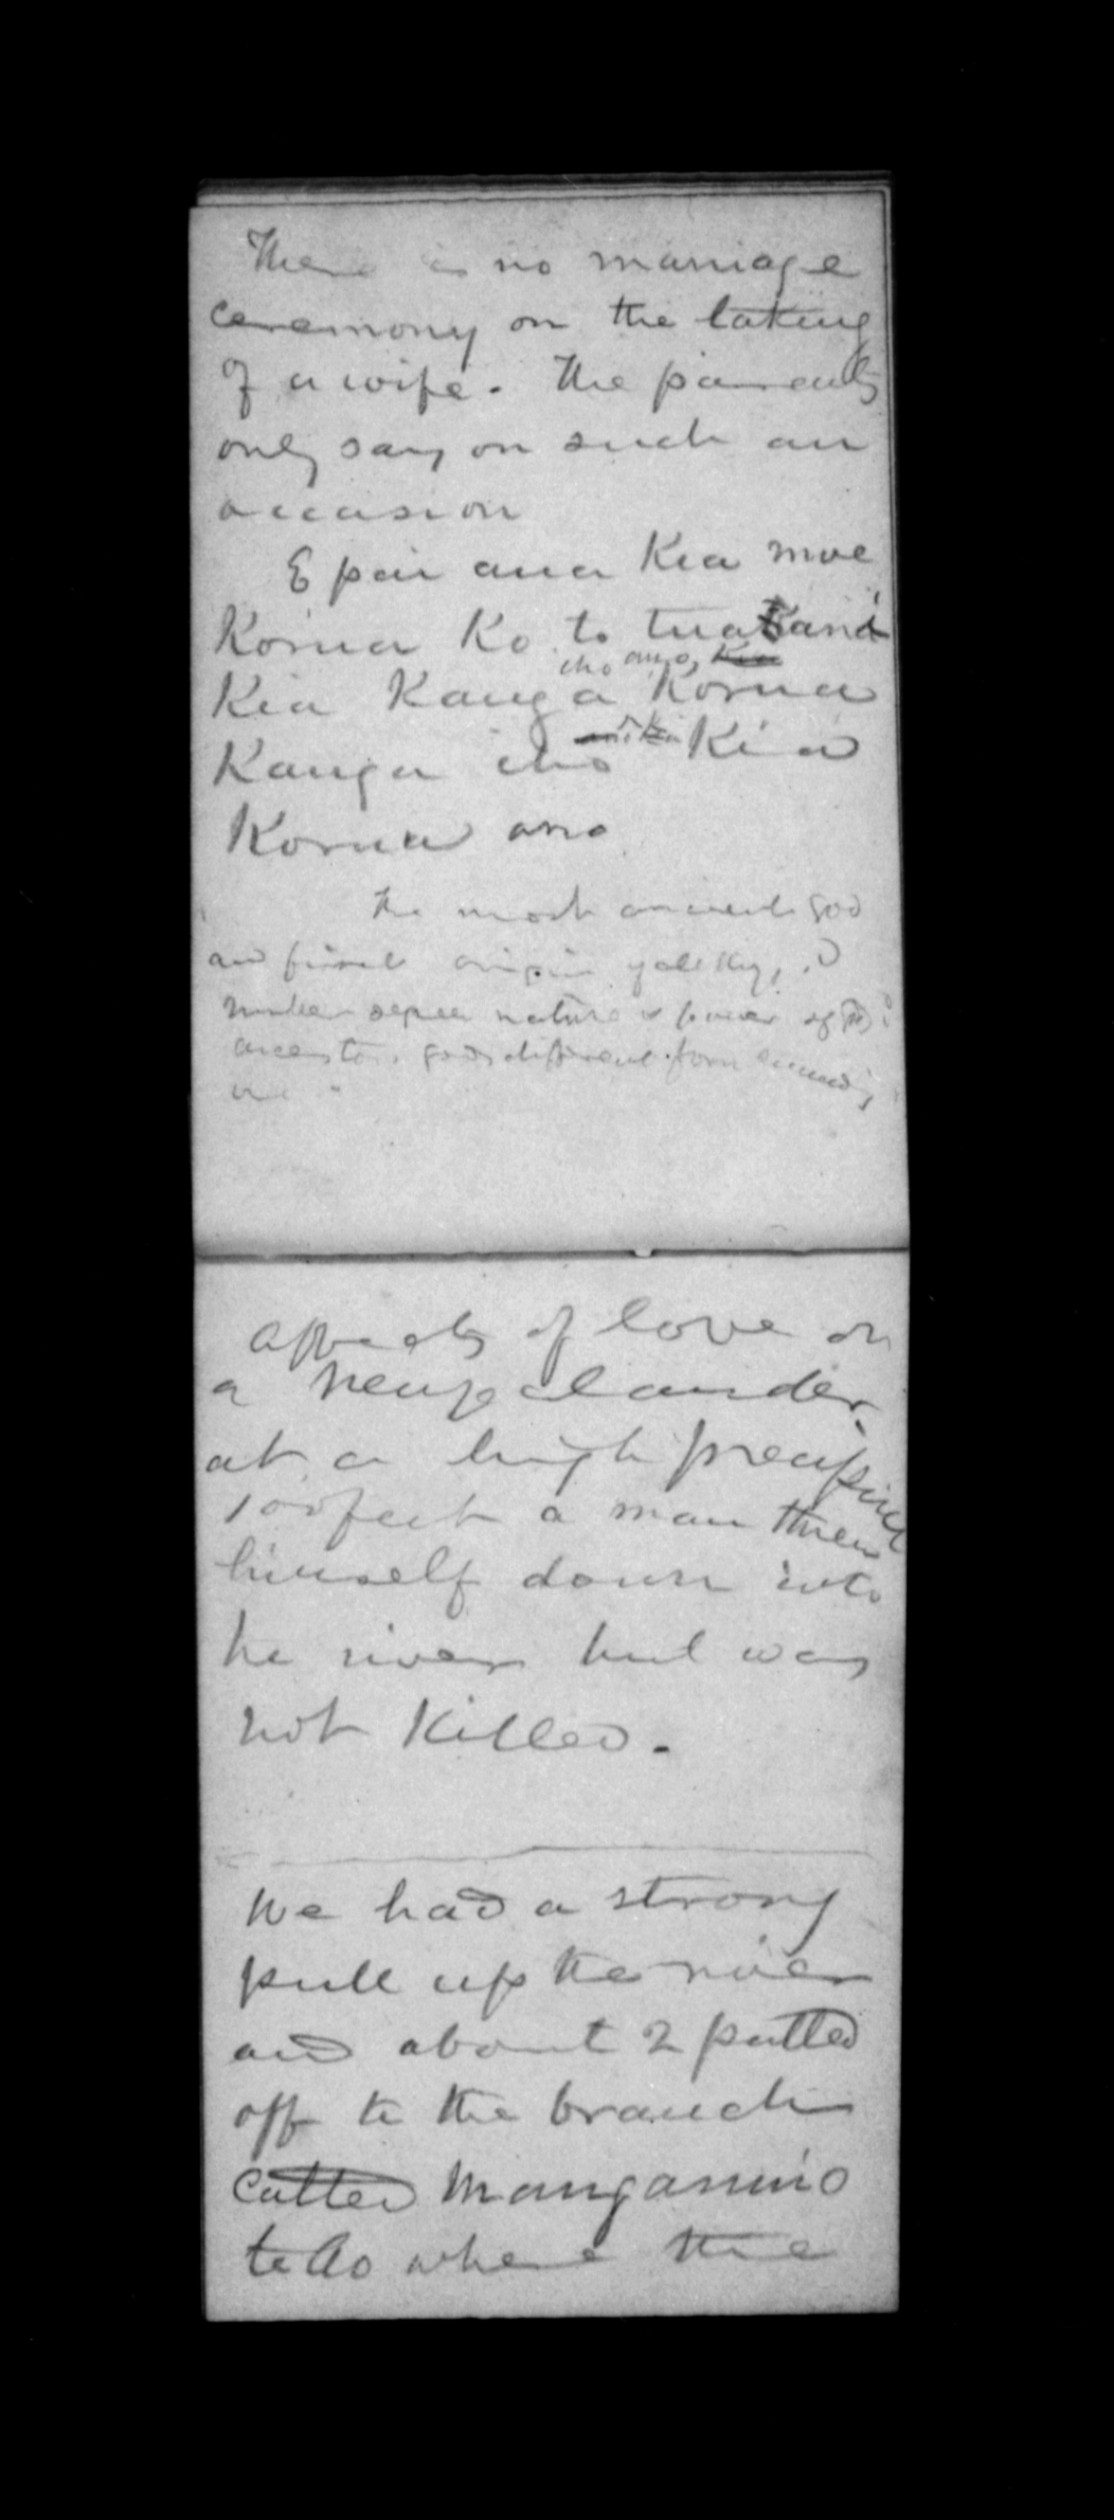 There is no marriage
ceremony on the taking
of a wife. The parents
only say on such an
occasion
E pai ana Kia moe
Korua Ko to tua
eho ano, Kia
Kia Kanga Korua
Kanga eho Kia
Korua ano
The most ancient god
and first origin of all
nature & power of
ancestors gods different form
affects of love on
a Newzealander
at a high precipice
100 feet a man threw
himself down into
he river but was
not Killed.
We had a strong
pull up the river
and about 2 pulled
off to the branch
called Mangamino
te Ao where the